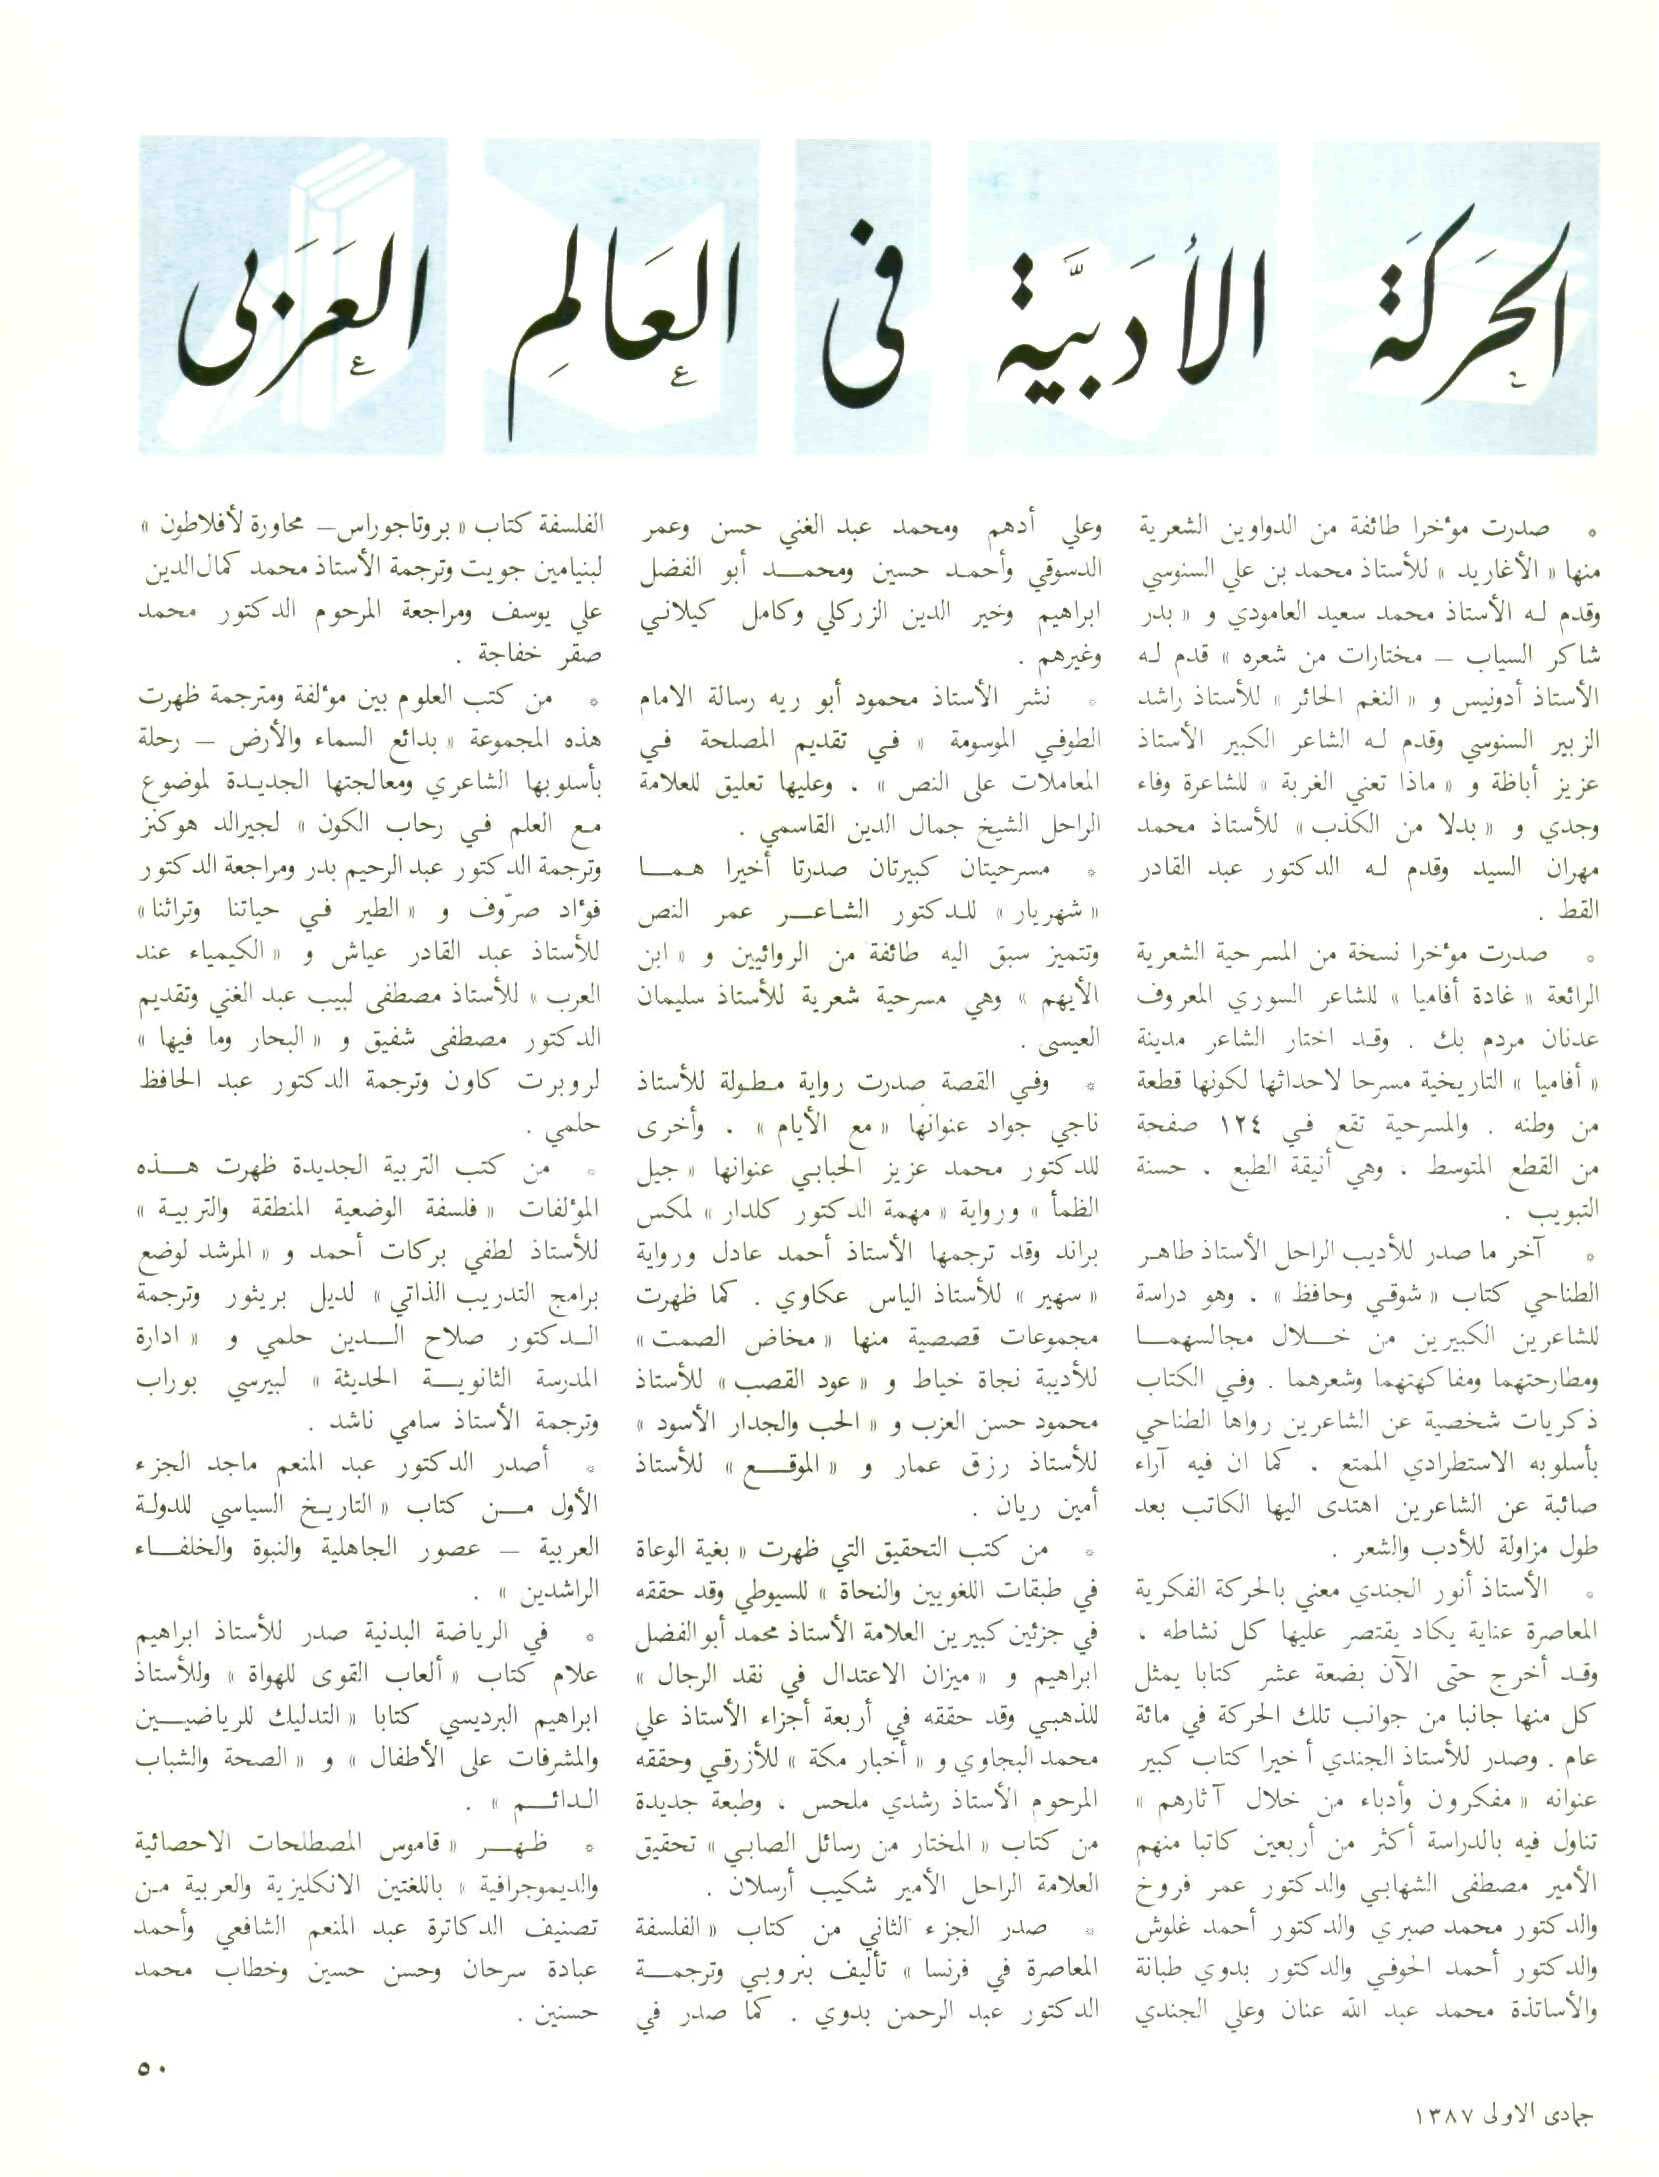 الحركة الأدبية في العالم العربي
• صدرت موٴخرا طائفة من الدواوين الشعرية
منها « الأغاريد » للأستاذ محمد بن علي السنوسي
وقدم له الأستاذ محمد سعيد العامودي و « بدر
شاكر السياب — مختارات من شعره » قدم له
الأستاذ أدونيس و « النغم الحائر » للأستاذ راشد
الزبير السنوسي وقدم له الشاعر الكبير الأستاذ
عزيز أباظة و « ماذا تعني الغربة » للشاعرة وفاء
وجدي و « بدلا من الكذب » للأستاذ محمد
مهران السيد وقدم له الدكتور عبد القادر
القط .
• صدرت موٴخرا نسخة من المسرحية الشعرية
الرائعة « غادة أفاميا » للشاعر السوري المعروف
عدنان مردم بك . وقد اختار الشاعر مدينة
« أفاميا » التاريخية مسرحا لاحداثها لكونها قطعة
من وطنه . والمسرحية تقع في ١٢٤ صفحة
من القطع المتوسط ، وهي أنيقة الطبع ، حسنة
التبويب .
• آخر ما صدر للأديب الراحل الأستاذ طاهر
الطناحي كتاب « شوقي وحافظ » ، وهو دراسة
للشاعرين الكبيرين من خلال مجالسهما
ومطارحتهما ومفاكهتهما وشعرهما . وفي الكتاب
ذكريات شخصية عن الشاعرين رواها الطناحي
بأسلوبه الاستطرادي الممتع ، كما ان فيه آراء
صائبة عن الشاعرين اهتدى اليها الكاتب بعد
طول مزاولة للأدب والشعر .
• الأستاذ أنور الجندي معني بالحركة الفكرية
المعاصرة عناية يكاد يقتصر عليها كل نشاطه ،
وقد أخرج حتى الآن بضعة عشر كتابا يمثل
كل منها جانبا من جوانب تلك الحركة في مائة
عام . وصدر للأستاذ الجندي أخيرا كتاب كبير
عنوانه « مفكرون وأدباء من خلال آثارهم »
تناول فيه بالدراسة أكثر من أربعين كاتبا منهم
الأمير مصطفى الشهابي والدكتور عمر فروخ
والدكتور محمد صبري والدكتور أحمد غلوش
والدكتور أحمد الحوفي والدكتور بدوي طبانة
والأساتذة محمد عبد الله عنان وعلي الجندي
وعلي أدهم ومحمد عبد الغني حسن وعمر
الدسوقي وأحمد حسين ومحمد أبو الفضل
ابراهيم وخير الدين الزركلي وكامل كيلاني
وغيرهم .
• نشر الأستاذ محمود أبو ريه رسالة الامام
الطوفي الموسومة « في تقديم المصلحة في
المعاملات على النص » ، وعليها تعليق للعلامة
الراحل الشيخ جمال الدين القاسمي .
• مسرحيتان كبيرتان صدرتا أخيرا هما
« شهريار » للدكتور الشاعر عمر النص
وتتميز سبق اليه طائفة من الروائيين و « ابن
الأيهم » وهي مسرحية شعرية للأستاذ سليمان
العيسى .
• وفي القصة صدرت رواية مطولة للأستاذ
ناجي جواد عنوانها « مع الأيام » ، وأخرى
للدكتور محمد عزيز الحبابي عنوانها « جيل
الظمأ » ورواية « مهمة الدكتور كلدار » لمكس
براند وقد ترجمها الأستاذ أحمد عادل ورواية
« سهير » للأستاذ الياس عكاوي . كما ظهرت
مجموعات قصصية منها « مخاض الصمت »
للأديبة نجاة خياط و « عود القصب » للأستاذ
محمود حسن العزب و « الحب والجدار الأسود »
للأستاذ رزق عمار و « الموقع » للأستاذ
أمين ريان .
• من كتب التحقيق التي ظهرت « بغية الوعاة
في طبقات اللغويين والنحاة » للسيوطي وقد حققه
في جزئين كبيرين العلامة الأستاذ محمد أبو الفضل
ابراهيم و « ميزان الاعتدال في نقد الرجال »
للذهبي وقد حققه في أربعة أجزاء الأستاذ علي
محمد البجاوي و « أخبار مكة » للأزرقي وحققه
المرحوم الأستاذ رشدي ملحس ، وطبعة جديدة
من كتاب « المختار من رسائل الصابي » تحقيق
العلامة الراحل الأمير شكيب أرسلان .
• صدر الجزء الثاني من كتاب « الفلسفة
المعاصرة في فرنسا » تأليف بنروبي وترجمة
الدكتور عبد الرحمن بدوي . كما صدر في
الفلسفة كتاب « بروتاجوراس — محاورة لأفلاطون »
لبنيامين جويت وترجمة الأستاذ محمد كمال الدين
علي يوسف ومراجعة المرحوم الدكتور محمد
صقر خفاجة .
• من كتب العلوم بين موٴلفة ومترجمة ظهرت
هذه المجموعة « بدائع السماء والأرض — رحلة
بأسلوبها الشاعري ومعالجتها الجديدة لموضوع
مع العلم في رحاب الكون » لجيرالد هوكنز
وترجمة الدكتور عبد الرحيم بدر ومراجعة الدكتور
فوٴاد صرّوف و « الطير في حياتنا وتراثنا »
للأستاذ عبد القادر عياش و « الكيمياء عند
العرب » للأستاذ مصطفى لبيب عبد الغني وتقديم
الدكتور مصطفى شفيق و « البحار وما فيها »
لروبرت كاون وترجمة الدكتور عبد الحافظ
حلمي .
• من كتب التربية الجديدة ظهرت هذه
الموٴلفات « فلسفة الوضعية المنطقة والتربية »
للأستاذ لطفي بركات أحمد و « المرشد لوضع
برامج التدريب الذاتي » لديل بريثور وترجمة
الدكتور صلاح الدين حلمي و « ادارة
المدرسة الثانوية الحديثة » لبيرسي بوراب
وترجمة الأستاذ سامي ناشد .
• أصدر الدكتور عبد المنعم ماجد الجزء
الأول من كتاب « التاريخ السياسي للدولة
العربية — عصور الجاهلية والنبوة والخلفاء
الراشدين » .
• في الرياضة البدنية صدر للأستاذ ابراهيم
علام كتاب « ألعاب القوى للهواة » وللأستاذ
ابراهيم البرديسي كتابا « التدليك للرياضيين
والمشرفات على الأطفال » و « الصحة والشباب
الدائم » .
• ظهر « قاموس المصطلحات الاحصائية
والديموجرافية » باللغتين الانكليزية والعربية من
تصنيف الدكاترة عبد المنعم الشافعي وأحمد
عبادة سرحان وحسن حسين وخطاب محمد
حسنين .
٥٠
جمادى الاولى ١٣٨٧